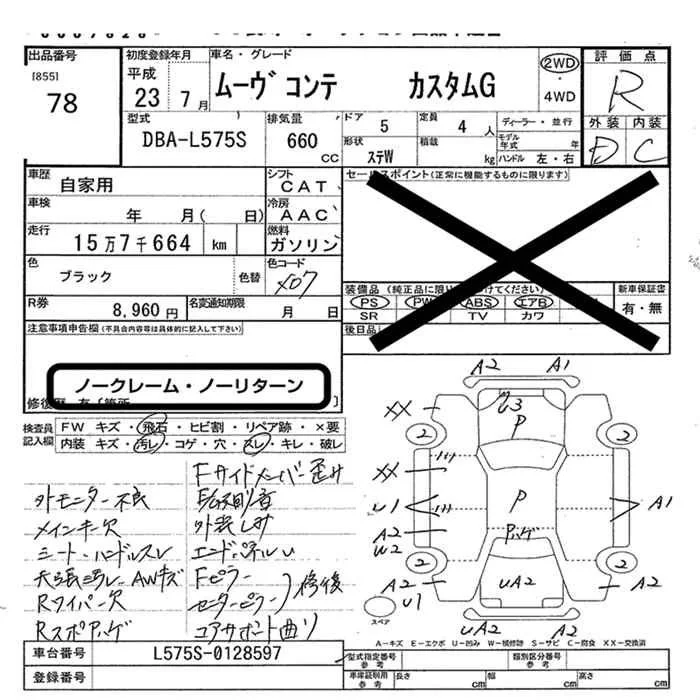 出品番号
[855]
78
初度登録年月
平成
23 7 月
車名・グレード
ムーヴ コンテ カスタムG
2WD
・
4WD
評価点
R
外装 内装
D C
型式
DBA-L575S
排気量
660
CC
ドア
5
定員
4 人
ディーラー・並行
モデル
年式 年
形状
ステW
積載
kg
ハンドル 左・右
車歴
自家用
シフト
CAT
車検
年 月( 日)
冷房
AAC
走行
15万7千664 km
燃料
ガソリン
色
ブラック
色替
色コード
X07
R券
8,960 円
名変通知期限
月 日
セールスポイント(正常に機能するものに限ります)
装備品
PS PW ABS エアB
SR TV カワ
後日品
新車保証書
有・無
注意事項申告欄(不具合内容等は具体的に記入して下さい)
ノークレーム・ノーリターン
検査員
記入欄
FW キズ・飛石・ヒビ割・リペア跡・×要
内装 キズ・汚レ・コゲ・穴・スレ・キレ・破レ
Fサイドメンバー歪み
外モニター不良
メインキー欠
外装しみ
シート・ハンドルスレ
エンドパネルU
天張汚レ AWキズ
Fピラー
センターピラー
修復
Rワイパー欠
コアサポート曲り
A2 A1
XX
U3
P
2 2
XX
U1
A2
W2
P
Pハゲ
A1
2 2
A2
U1
UA2
A2
UA2 A2
スペア
A-キズ E-エクボ U-凹み W-補修跡 S-サビ C-腐食 XX-交換済
車台番号
L575S-0128597
登録番号
型式指定番号
参考
類別区分番号
参考
車庫証明用
参考
長さ cm
幅 cm
高さ cm